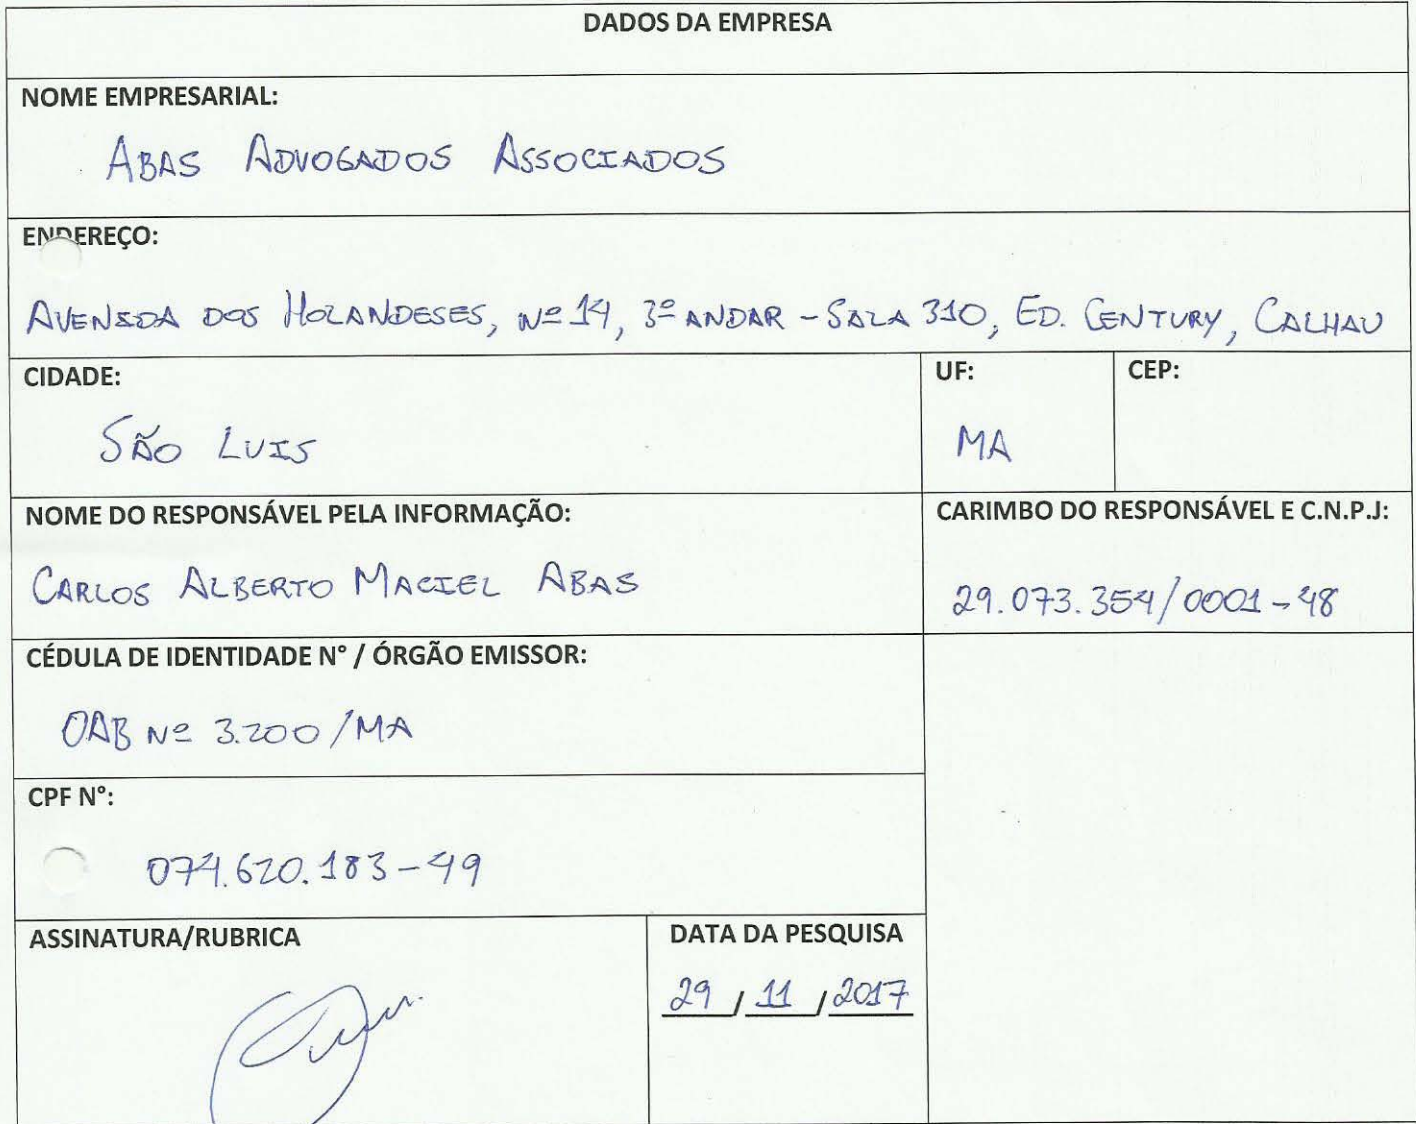 DADOS DA EMPRESA
NOME EMPRESARIAL:
ABAS ADVOGADOS ASSOCIADOS
ENDEREÇO:
AVENIDA DOS HOLANDESES, Nº 14, 3º ANDAR - SALA 310, ED. CENTURY, CALHAU
CIDADE:
SÃO LUIS
UF:
MA
CEP:
NOME DO RESPONSÁVEL PELA INFORMAÇÃO:
CARLOS ALBERTO MACIEL ABAS
CARIMBO DO RESPONSÁVEL E C.N.P.J:
29.073.354/0001-48
CÉDULA DE IDENTIDADE N° / ÓRGÃO EMISSOR:
OAB Nº 3.200/MA
CPF N°:
074.620.183-49
ASSINATURA/RUBRICA
DATA DA PESQUISA
29 / 11 / 2017